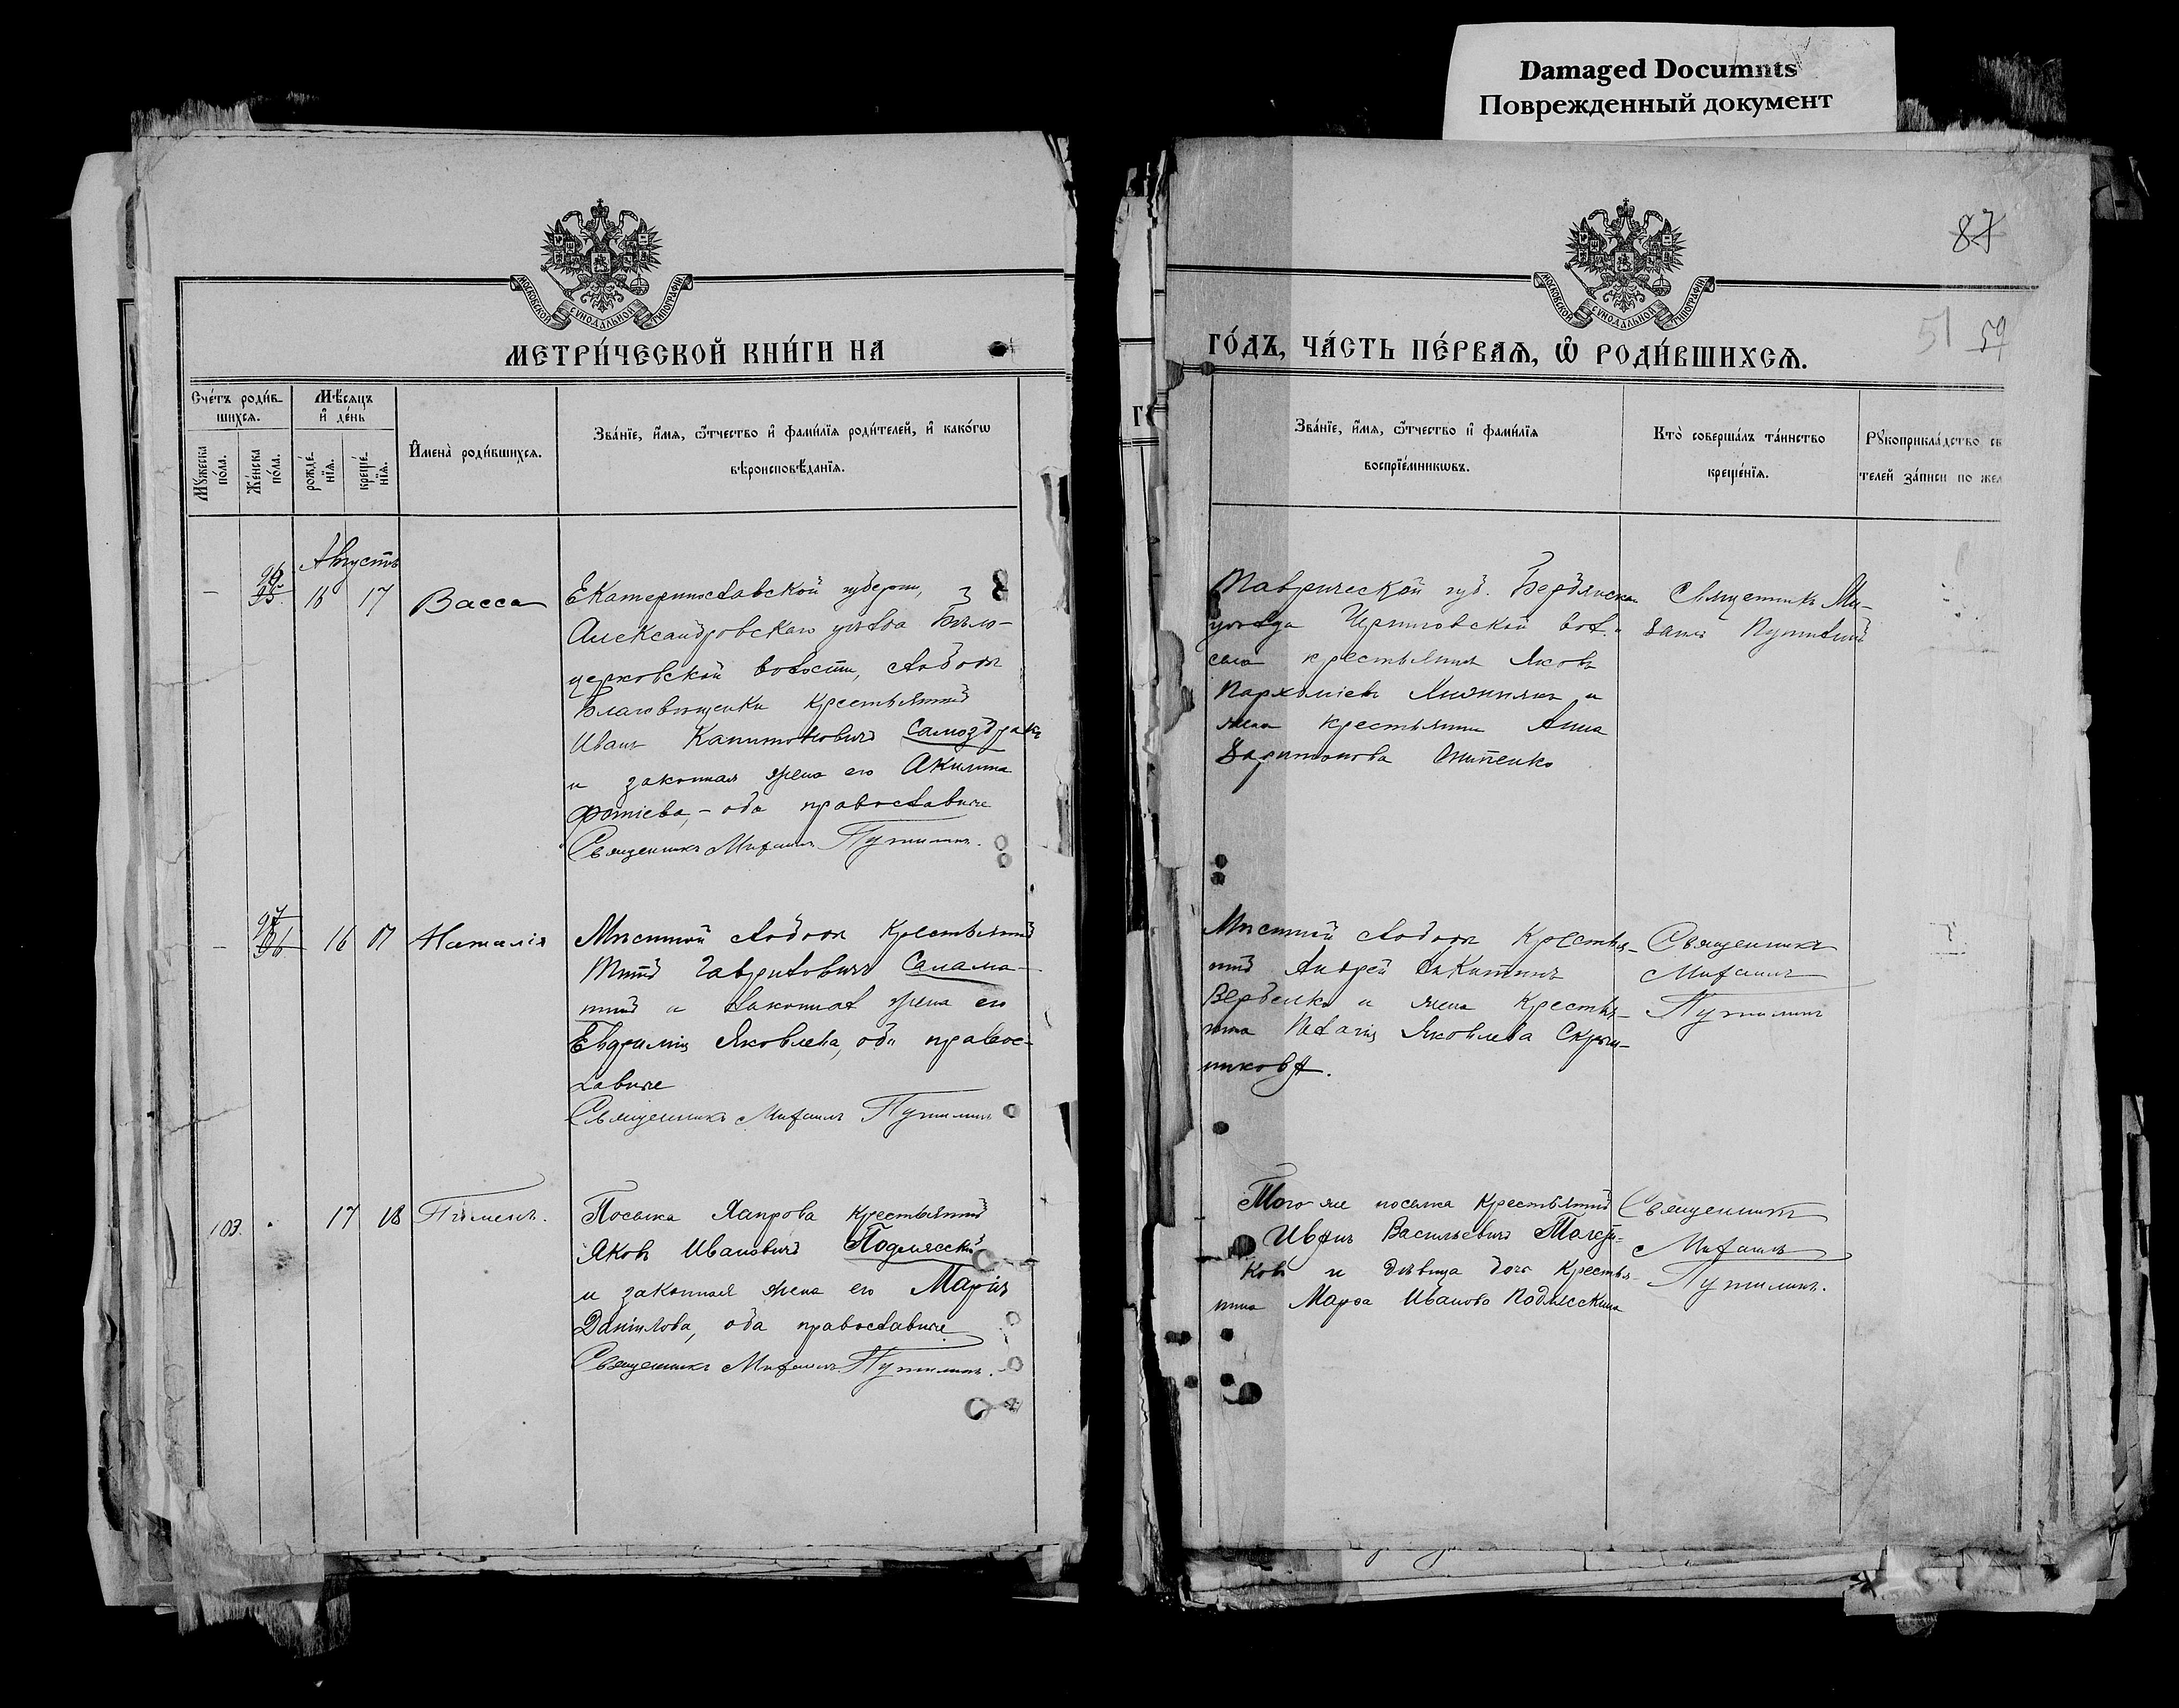 Damaged Documnts
Поврежденный документ
87
51 59
МОСКОВСКОЙ СѴНОДАЛЬНОЙ ТИПОГРАФІИ
МЕТРИ́ЧЕСКОЙ КНИ́ГИ НА
Сче́тъ роди́в-
шихсѧ.
Мѣ́сѧцъ
и҆ де́нь
Мꙋ́жеска
по́ла.
Же́нска
по́ла.
рожде́-
нїѧ.
креще́-
нїѧ.
И҆мена̀ роди́вшихсѧ.
Зва́нїе, и҆́мѧ, ѻ҆́тчество и҆ фами́лїѧ роди́телей, и҆ како́гѡ
вѣроисповѣ́данїѧ.
Августъ
96
95
16 17 Васса
Екатеринославской губерніи,
Александровскаго уѣзда Бѣло-
церковской волости, слободы
Благовѣщенки крестьянинъ
Иванъ Капитоновичъ
и законная жена его Акилина
Фотіева, – оба православные
Священникъ Михаилъ Путилинъ.
97
96
16 17 Наталія
Мѣстной слободы крестьянинъ
Титъ Гавриловичъ Салама-
тинъ и законная жена его
Евфимія Яковлева, оба правос-
лавные
Священникъ Михаилъ Путилинъ
103. 17 18 Пименъ.
Поселка Яапрова крестьянинъ
Яковъ Ивановичъ Подлясскій
и законная жена его Марія
Даніилова, оба православные
Священникъ Михаилъ Путилинъ.
МОСКОВСКОЙ СѴНОДАЛЬНОЙ ТИПОГРАФІИ
ГО́ДЪ, ЧА́СТЬ ПЕ́РВАѦ, Ѡ҆ РОДИ́ВШИХСѦ.
Зва́нїе, и҆́мѧ, ѻ҆́тчество и҆ фами́лїѧ
воспрїе́мникѡвъ.
Кто̀ соверша́лъ та́инство
креще́нїѧ.
Рꙋкоприкла́дство св
телей за́писи по жел
Таврической губ. Бердянскаго
уѣзда Черниговской вол.
села крестьянинъ Яковъ
Пархоміевъ и
жена крестьянина Анна
Харитонова
Священникъ Ми-
хаилъ Путилинъ
Мѣстной слободы крестья-
нинъ Андрей
и жена крестья-
нина Пелагія Яковлева Скрын-
никова.
Священникъ
Михаилъ
Путилинъ
Того же поселка крестьянинъ
Иванъ Васильевичъ
ковъ и дѣвица дочь крестья-
нина Марфа Иванова Подлясская
Священникъ
Михаилъ
Путилинъ.